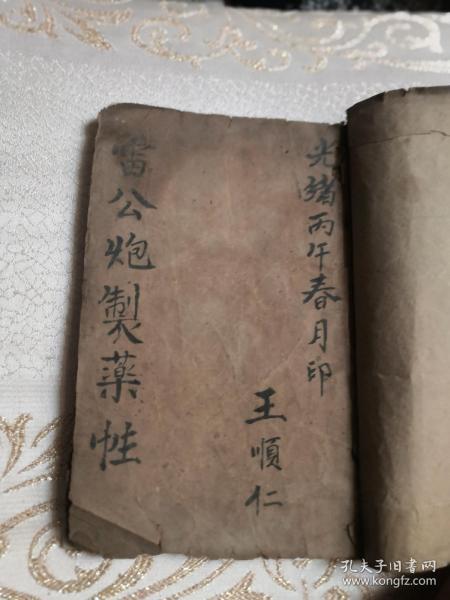 光緒丙午春月印
王順仁
雷公炮製藥性
孔夫子旧书网
www.kongfz.com